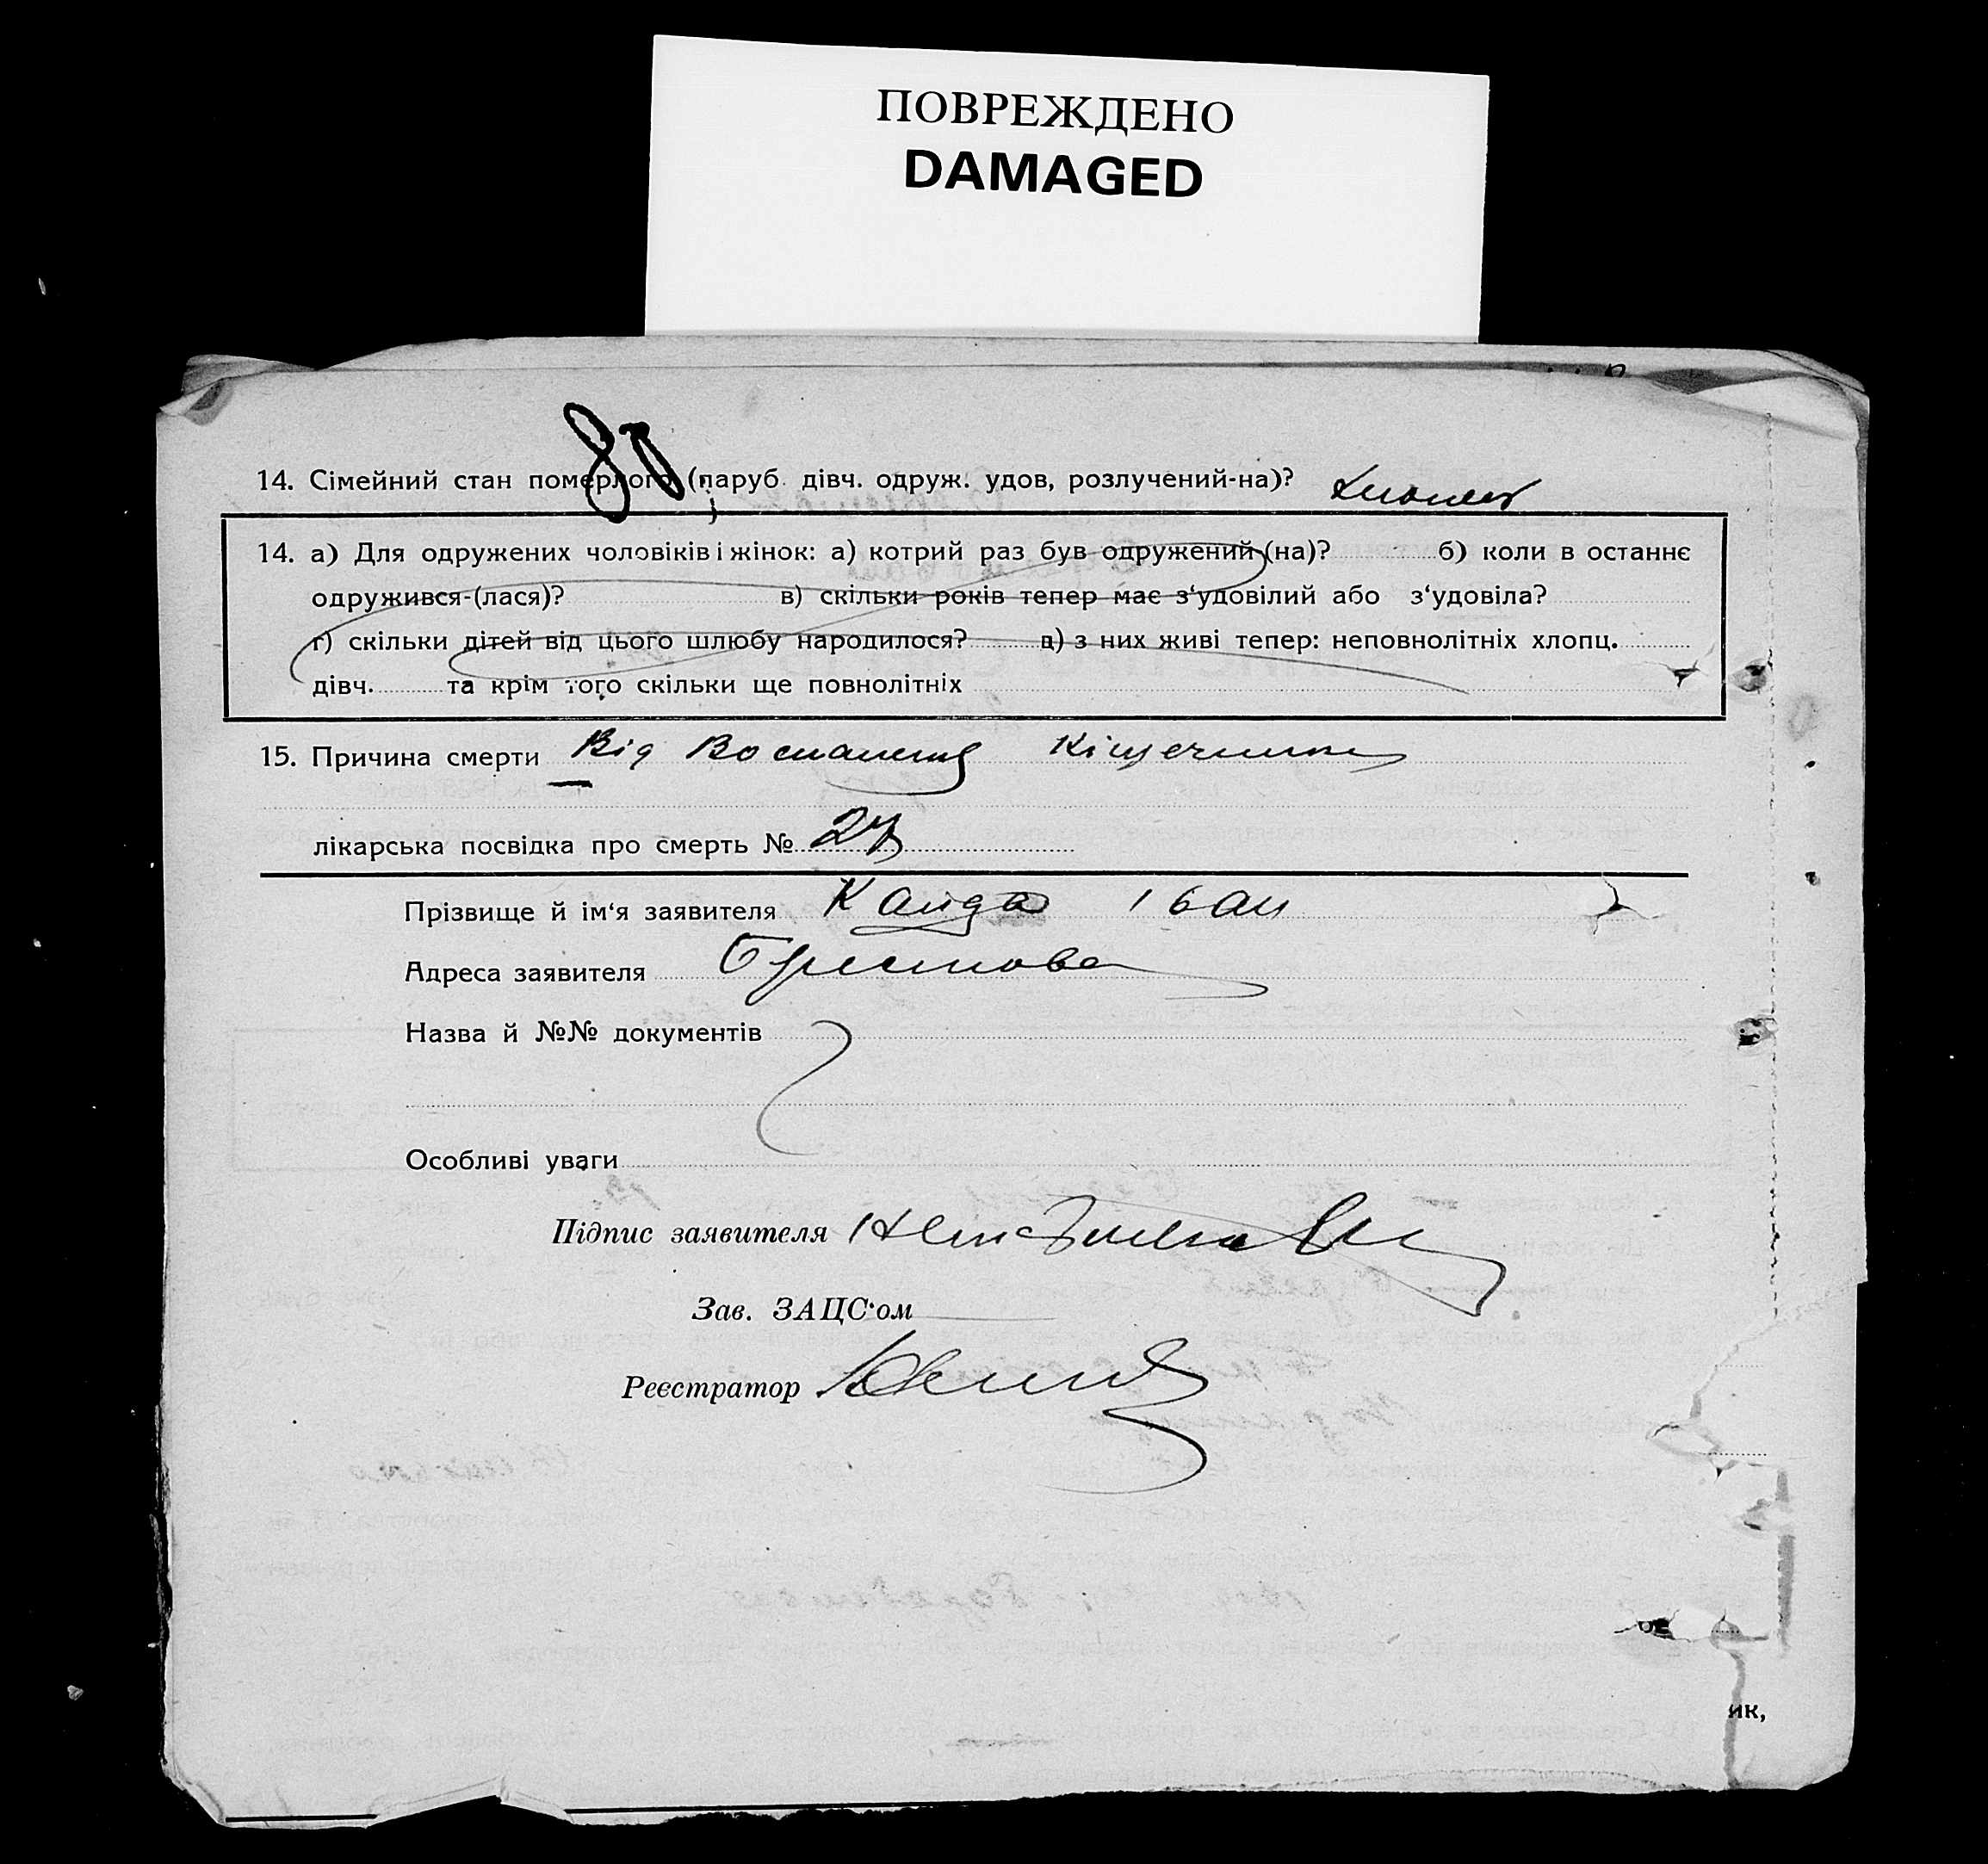 ПОВРЕЖДЕНО
DAMAGED
80
14. Сімейний стан померлого (паруб. дівч. одруж. удов, розлучений-на)?
14. а) Для одружених чоловіків і жінок: а) котрий раз був одружений-(на)? б) коли в останнє
одружився-(лася)? в) скільки років тепер має з‘удовілий або з‘удовіла?
г) скільки дітей від цього шлюбу народилося? д) з них живі тепер: неповнолітніх хлопц.
дівч. та крім того скільки ще повнолітніх
15. Причина смерти Від Воспаления Кішечника
лікарська посвідка про смерть № 27
Прізвище й ім‘я заявителя Кайда Іван
Адреса заявителя
Назва й №№ документів
Особливі уваги
Підпис заявителя
Зав. ЗАЦС‘ом
Реєстратор
ик,